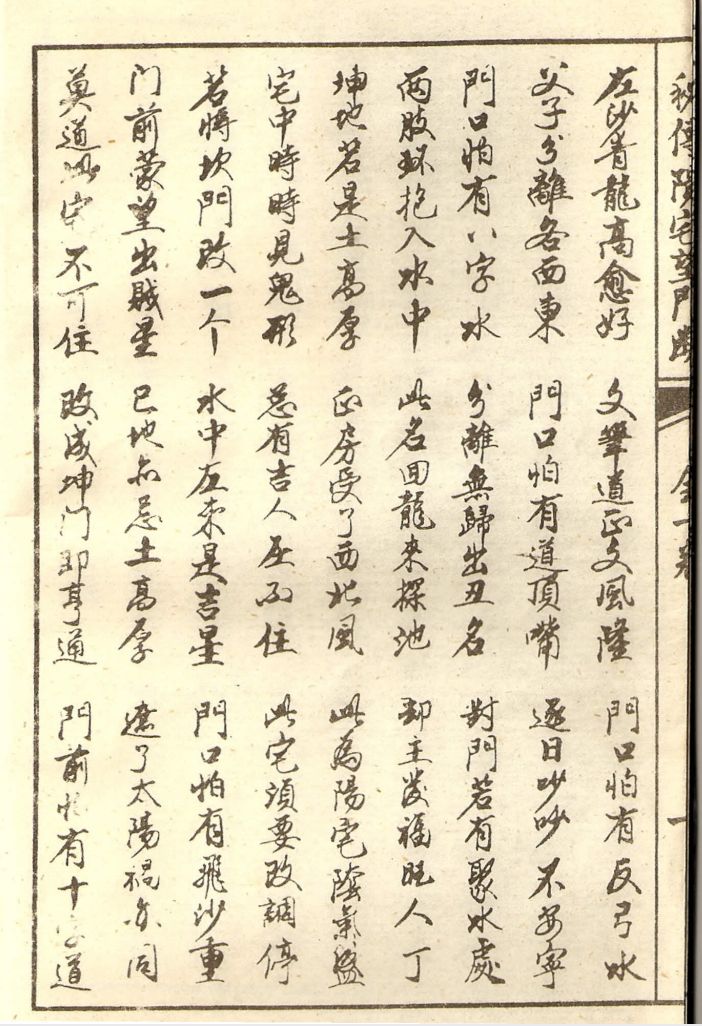 秘傳陽宅望門斷
全一卷
一
左沙青龍高愈好 文筆道正文風隆 門口怕有反弓水
父子分離各西東 門口怕有道頂嘴 逐日吵吵不安寧
門口怕有八字水 分離無歸出丑名 對門若有聚水處
两肢环抱入水中 此名回龍來探池 却主發福旺人丁
坤地若是土高厚 正房受了西北風 此為陽宅陰氣盛
宅中時時見鬼形 总有吉人在不住 此宅須要改調停
若將坎門改一个 水中左來是吉星 門口怕有飛沙重
门前蒙望出賊星 巳地亦忌土高厚 遮了太陽禍亦同
莫道此宅不可住 改成坤门即亨通 門前怕有十字道